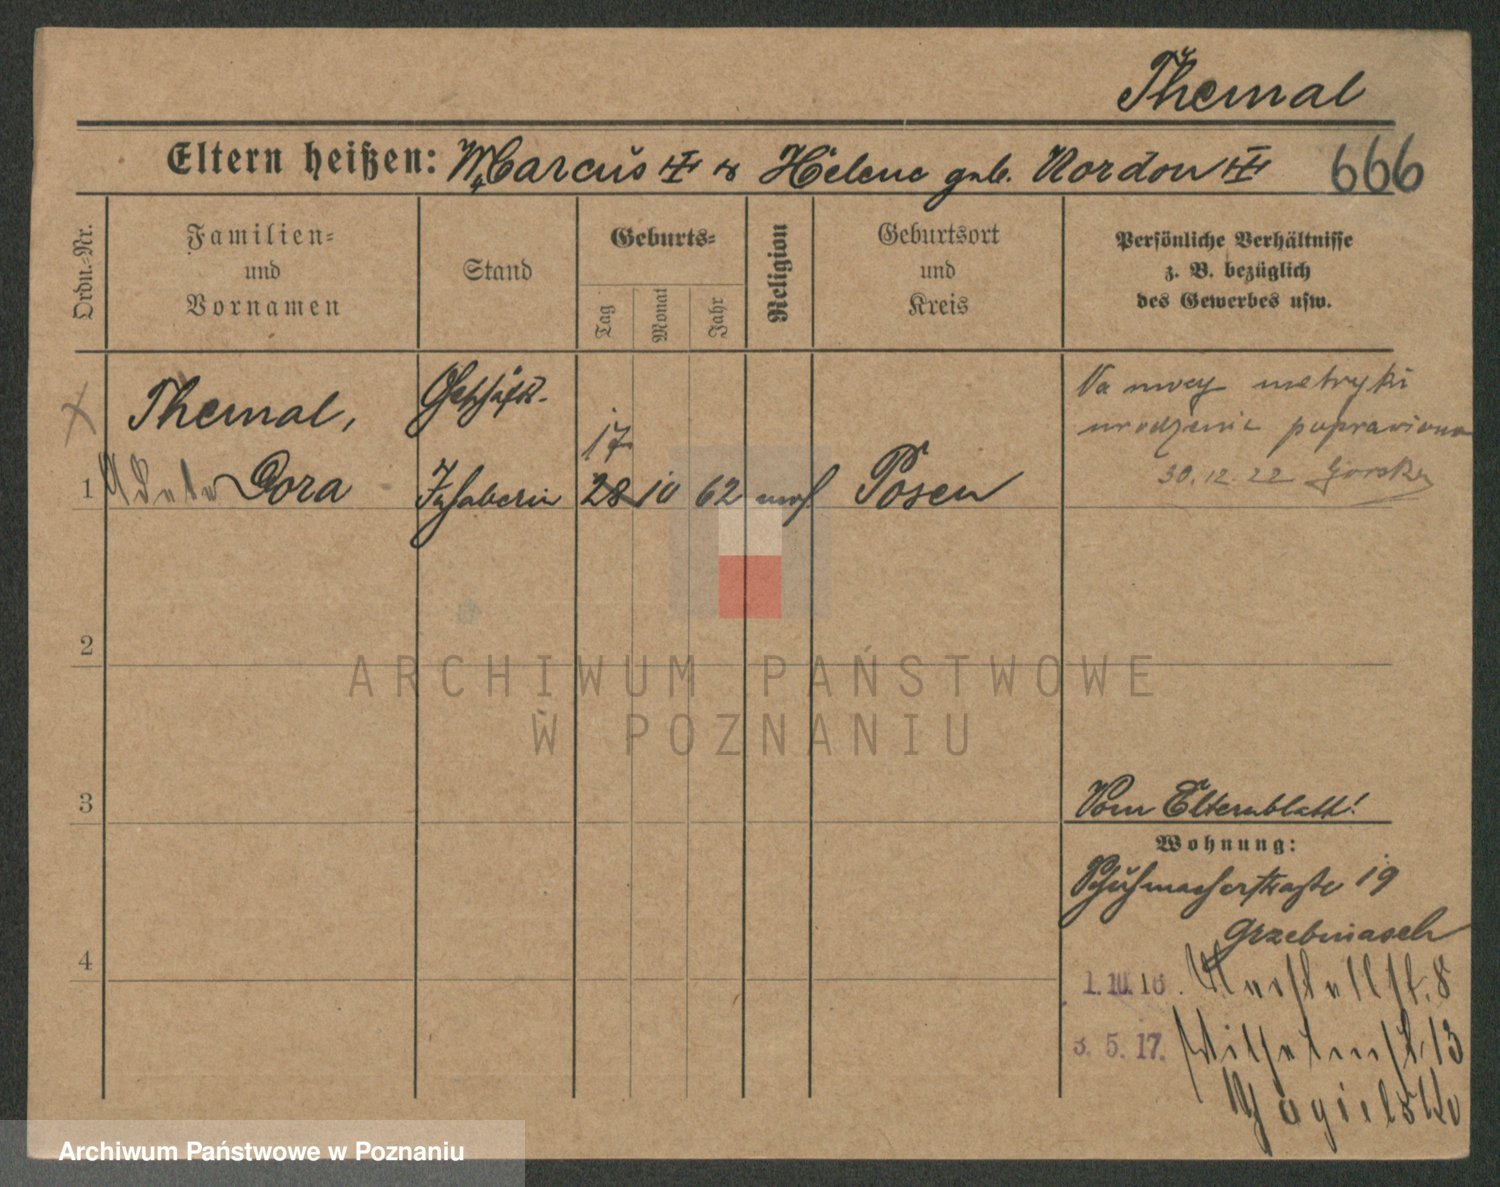 Themal
Eltern heißen: Marcus & Helene geb. Nordon
666
Ordn.-Nr.
Familien-
und
Vornamen
Stand
Geburts-
Tag
Monat
Jahr
Religion
Geburtsort
und
Kreis
Persönliche Verhältnisse
z. B. bezüglich
des Gewerbes usw.
Themal,
Geschäfts-
Na mocy metryki
urodzenia poprawiono
30.12.22 Gorski
17
1 Adele Cora Inhaberin 28 10 62 mos Posen
2
3
4
Vom Elternblatt!
Wohnung:
Schuhmacherstraße 19
Grzebinasch
1. 10. 16. 8
3. 5. 17. Wilhelmst. 13
ARCHIWUM PAŃSTWOWE
W POZNANIU
Archiwum Państwowe w Poznaniu